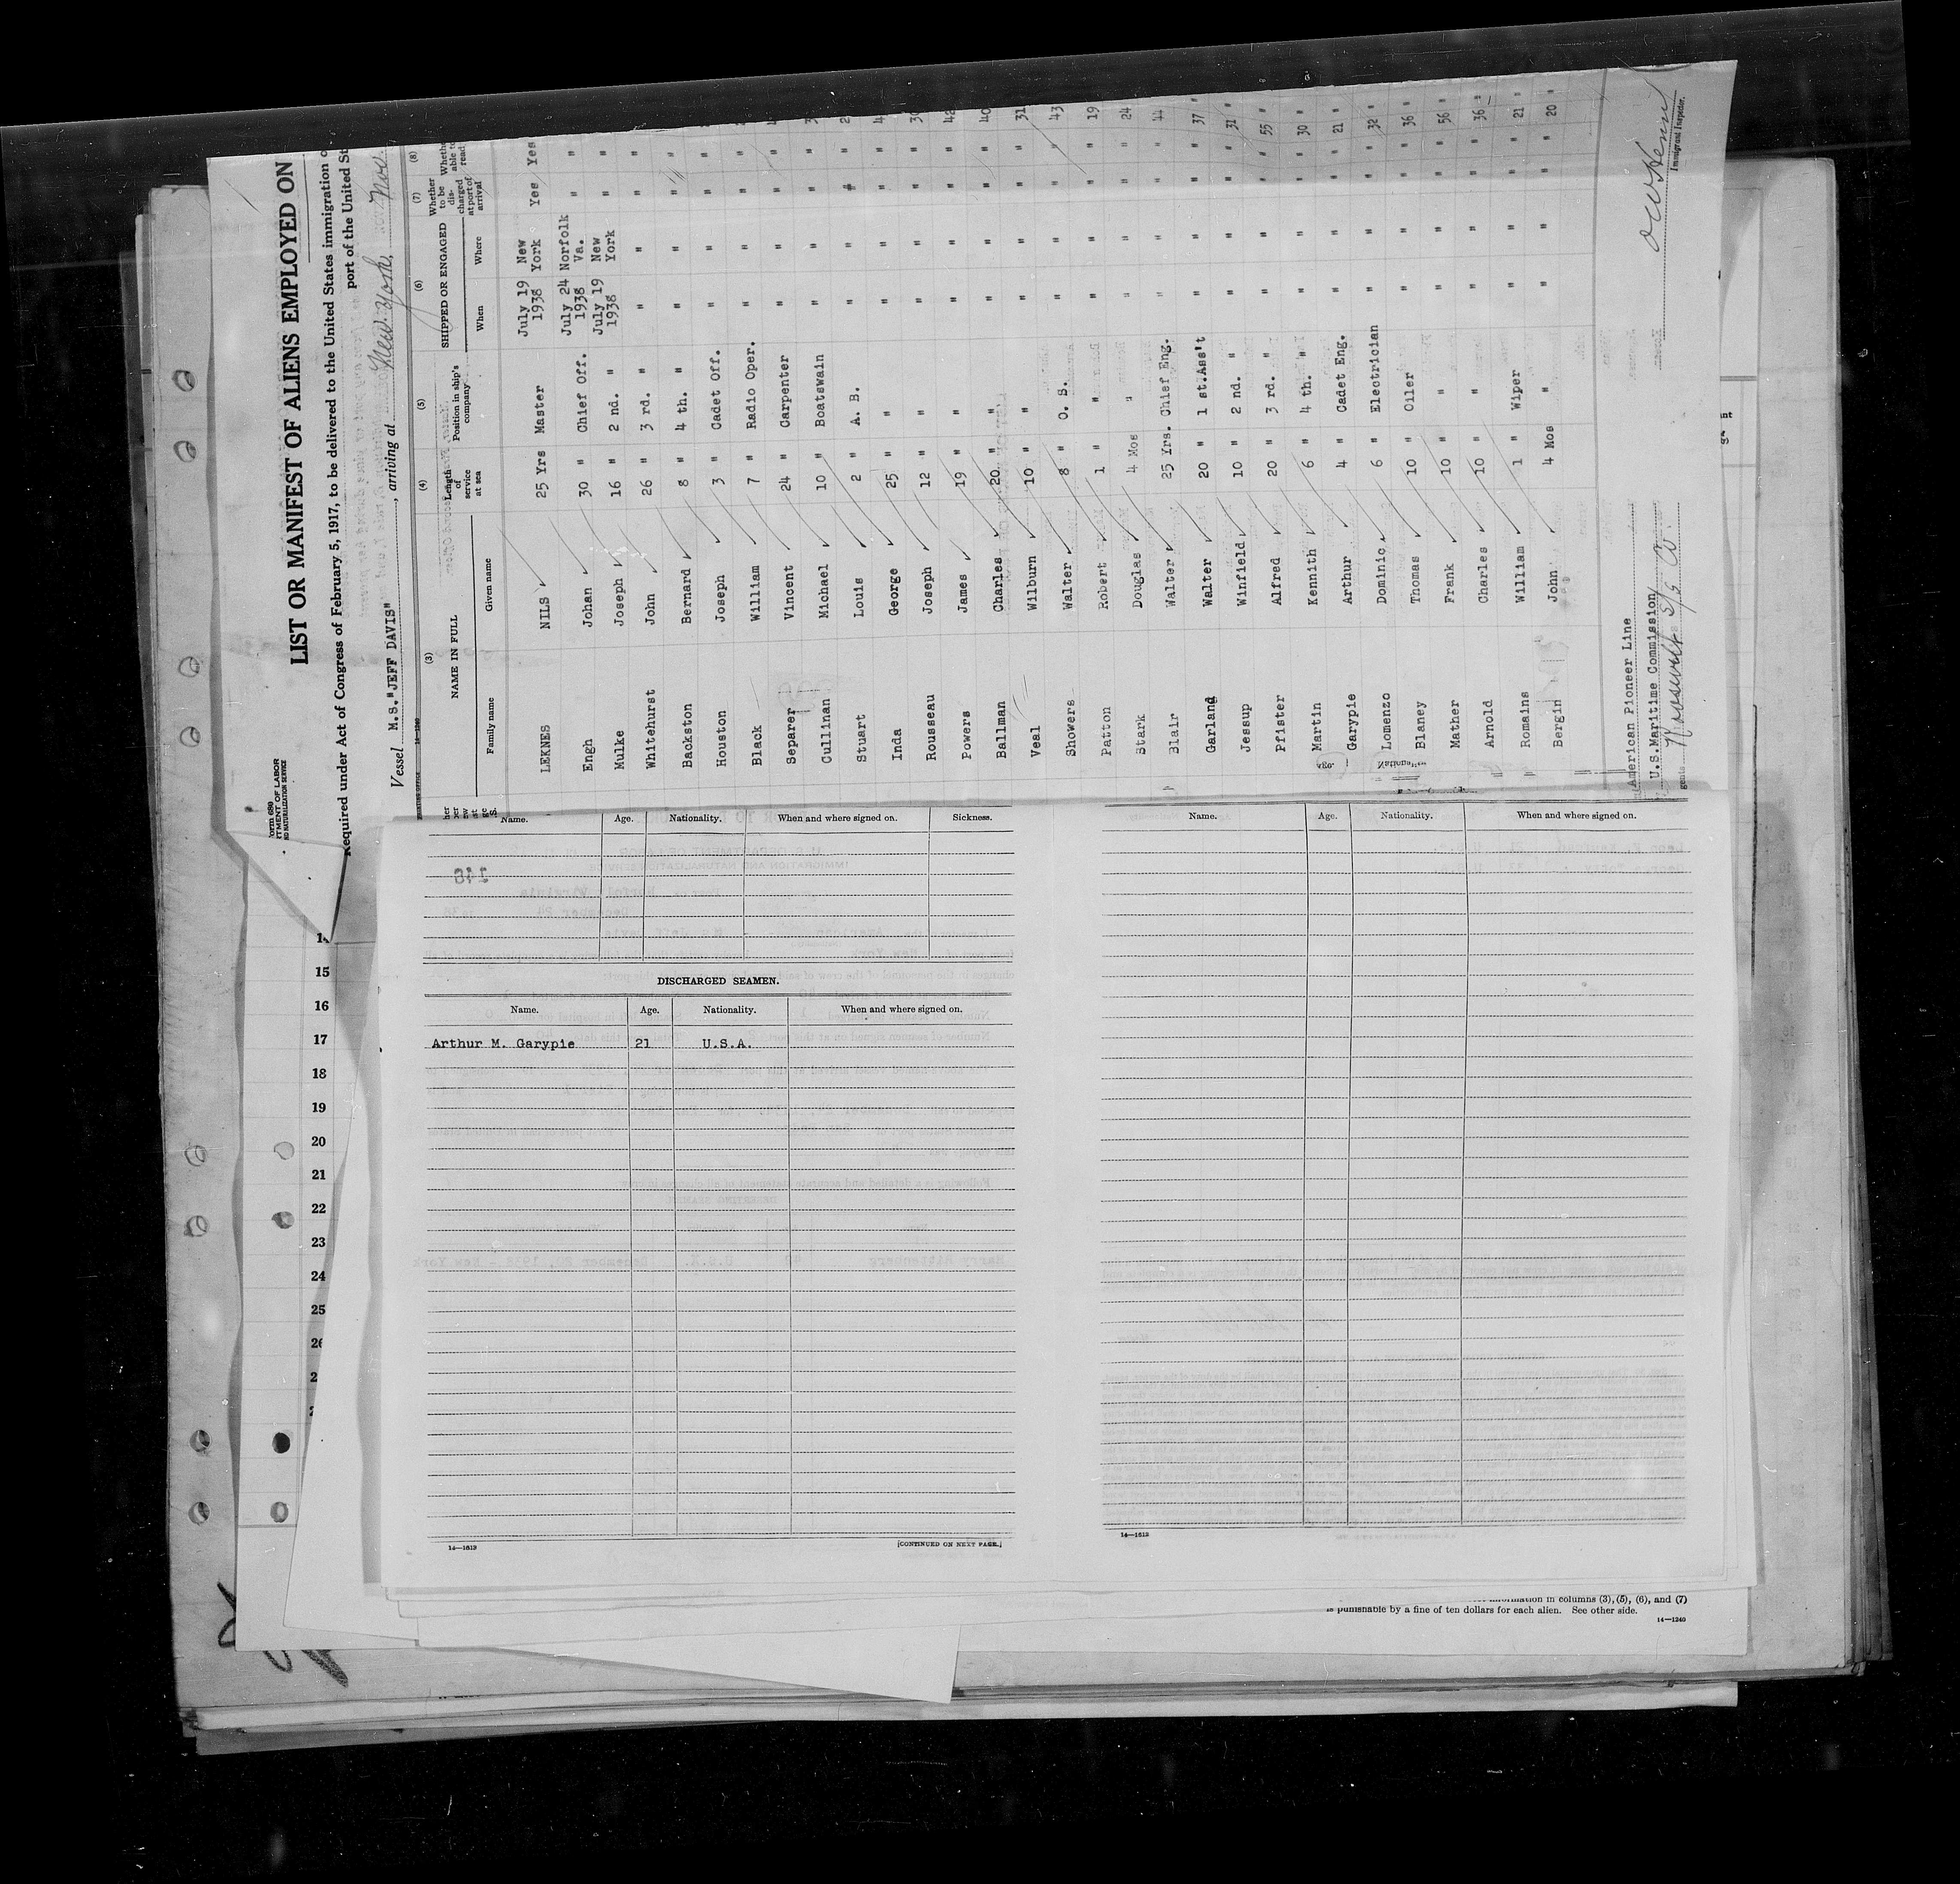 Form 680
LIST OR MANIFEST OF ALIENS EMPLOYED ON
Required under Act of Congress of February 5, 1917, to be delivered to the United States immigration
port of the United St
Vessel M.S."JEFF DAVIS", arriving at New York, Nov.
(3) (4) (5) (6) (7) (8)
NAME IN FULL Length of service at sea Position in ship's company SHIPPED OR ENGAGED Whether to be discharged at port of arrival
Family name Given name When Where
LEKNES NILS 25 Yrs Master July 19 1938 New York Yes Yes
Engh Johan 30 " Chief Off. July 24 1938 Norfolk Va. " "
Mulke Joseph 16 " 2 nd. " July 19 1938 New York " "
Whitehurst John 26 " 3 rd. " " " " "
Backston Bernard 8 " 4 th. " " " " "
Houston Joseph 3 " Cadet Off. " " " "
Black William 7 " Radio Oper. " " " "
Separer Vincent 24 " Carpenter " " " "
Cullinan Michael 10 " Boatswain " " " "
Stuart Louis 2 " A. B. " " " "
Inda George 25 " " " " " "
Rousseau Joseph 12 " " " " " "
Powers James 19 " " " " " " 42
Ballman Charles 20 " " " " " " 40
Veal Wilburn 10 " " " " " " 31
Showers Walter 8 " O. S. " " " " 43
Patton Robert 1 " " " " " " 19
Stark Douglas 4 Mos " " " " " 24
Blair Walter 25 Yrs. Chief Eng. " " " " 44
Garland Walter 20 " 1 st.Ass't " " " " 37 "
Jessup Winfield 10 " 2 nd. " " " " " 31 "
Pfister Alfred 20 " 3 rd. " " " " " 55 "
Martin Kennith 6 " 4 th. " " " " " 30 "
Garypie Arthur 4 " Cadet Eng. " " " " 21 "
Lomenzo Dominic 6 " Electrician " " " " 32 "
Blaney Thomas 10 " Oiler " " " " 36 "
Mather Frank 10 " " " " " " 56 "
Arnold Charles 10 " " " " " " 36 "
Romains William 1 " Wiper " " " " 21 "
Bergin John 4 Mos " " " " " 20 "
American Pioneer Line
U.S.Maritime Commission
Roosevelt S/S Co.
Immigrant Inspector.
Name. Age. Nationality. When and where signed on. Sickness.
DISCHARGED SEAMEN.
Name. Age. Nationality. When and where signed on.
Arthur M. Garypie 21 U.S.A.
14—1613 [CONTINUED ON NEXT PAGE.]
Name. Age. Nationality. When and where signed on.
14—1613
15
16
17
18
19
20
21
22
23
24
25
information in columns (3), (5), (6), and (7)
is punishable by a fine of ten dollars for each alien. See other side.
14—1240